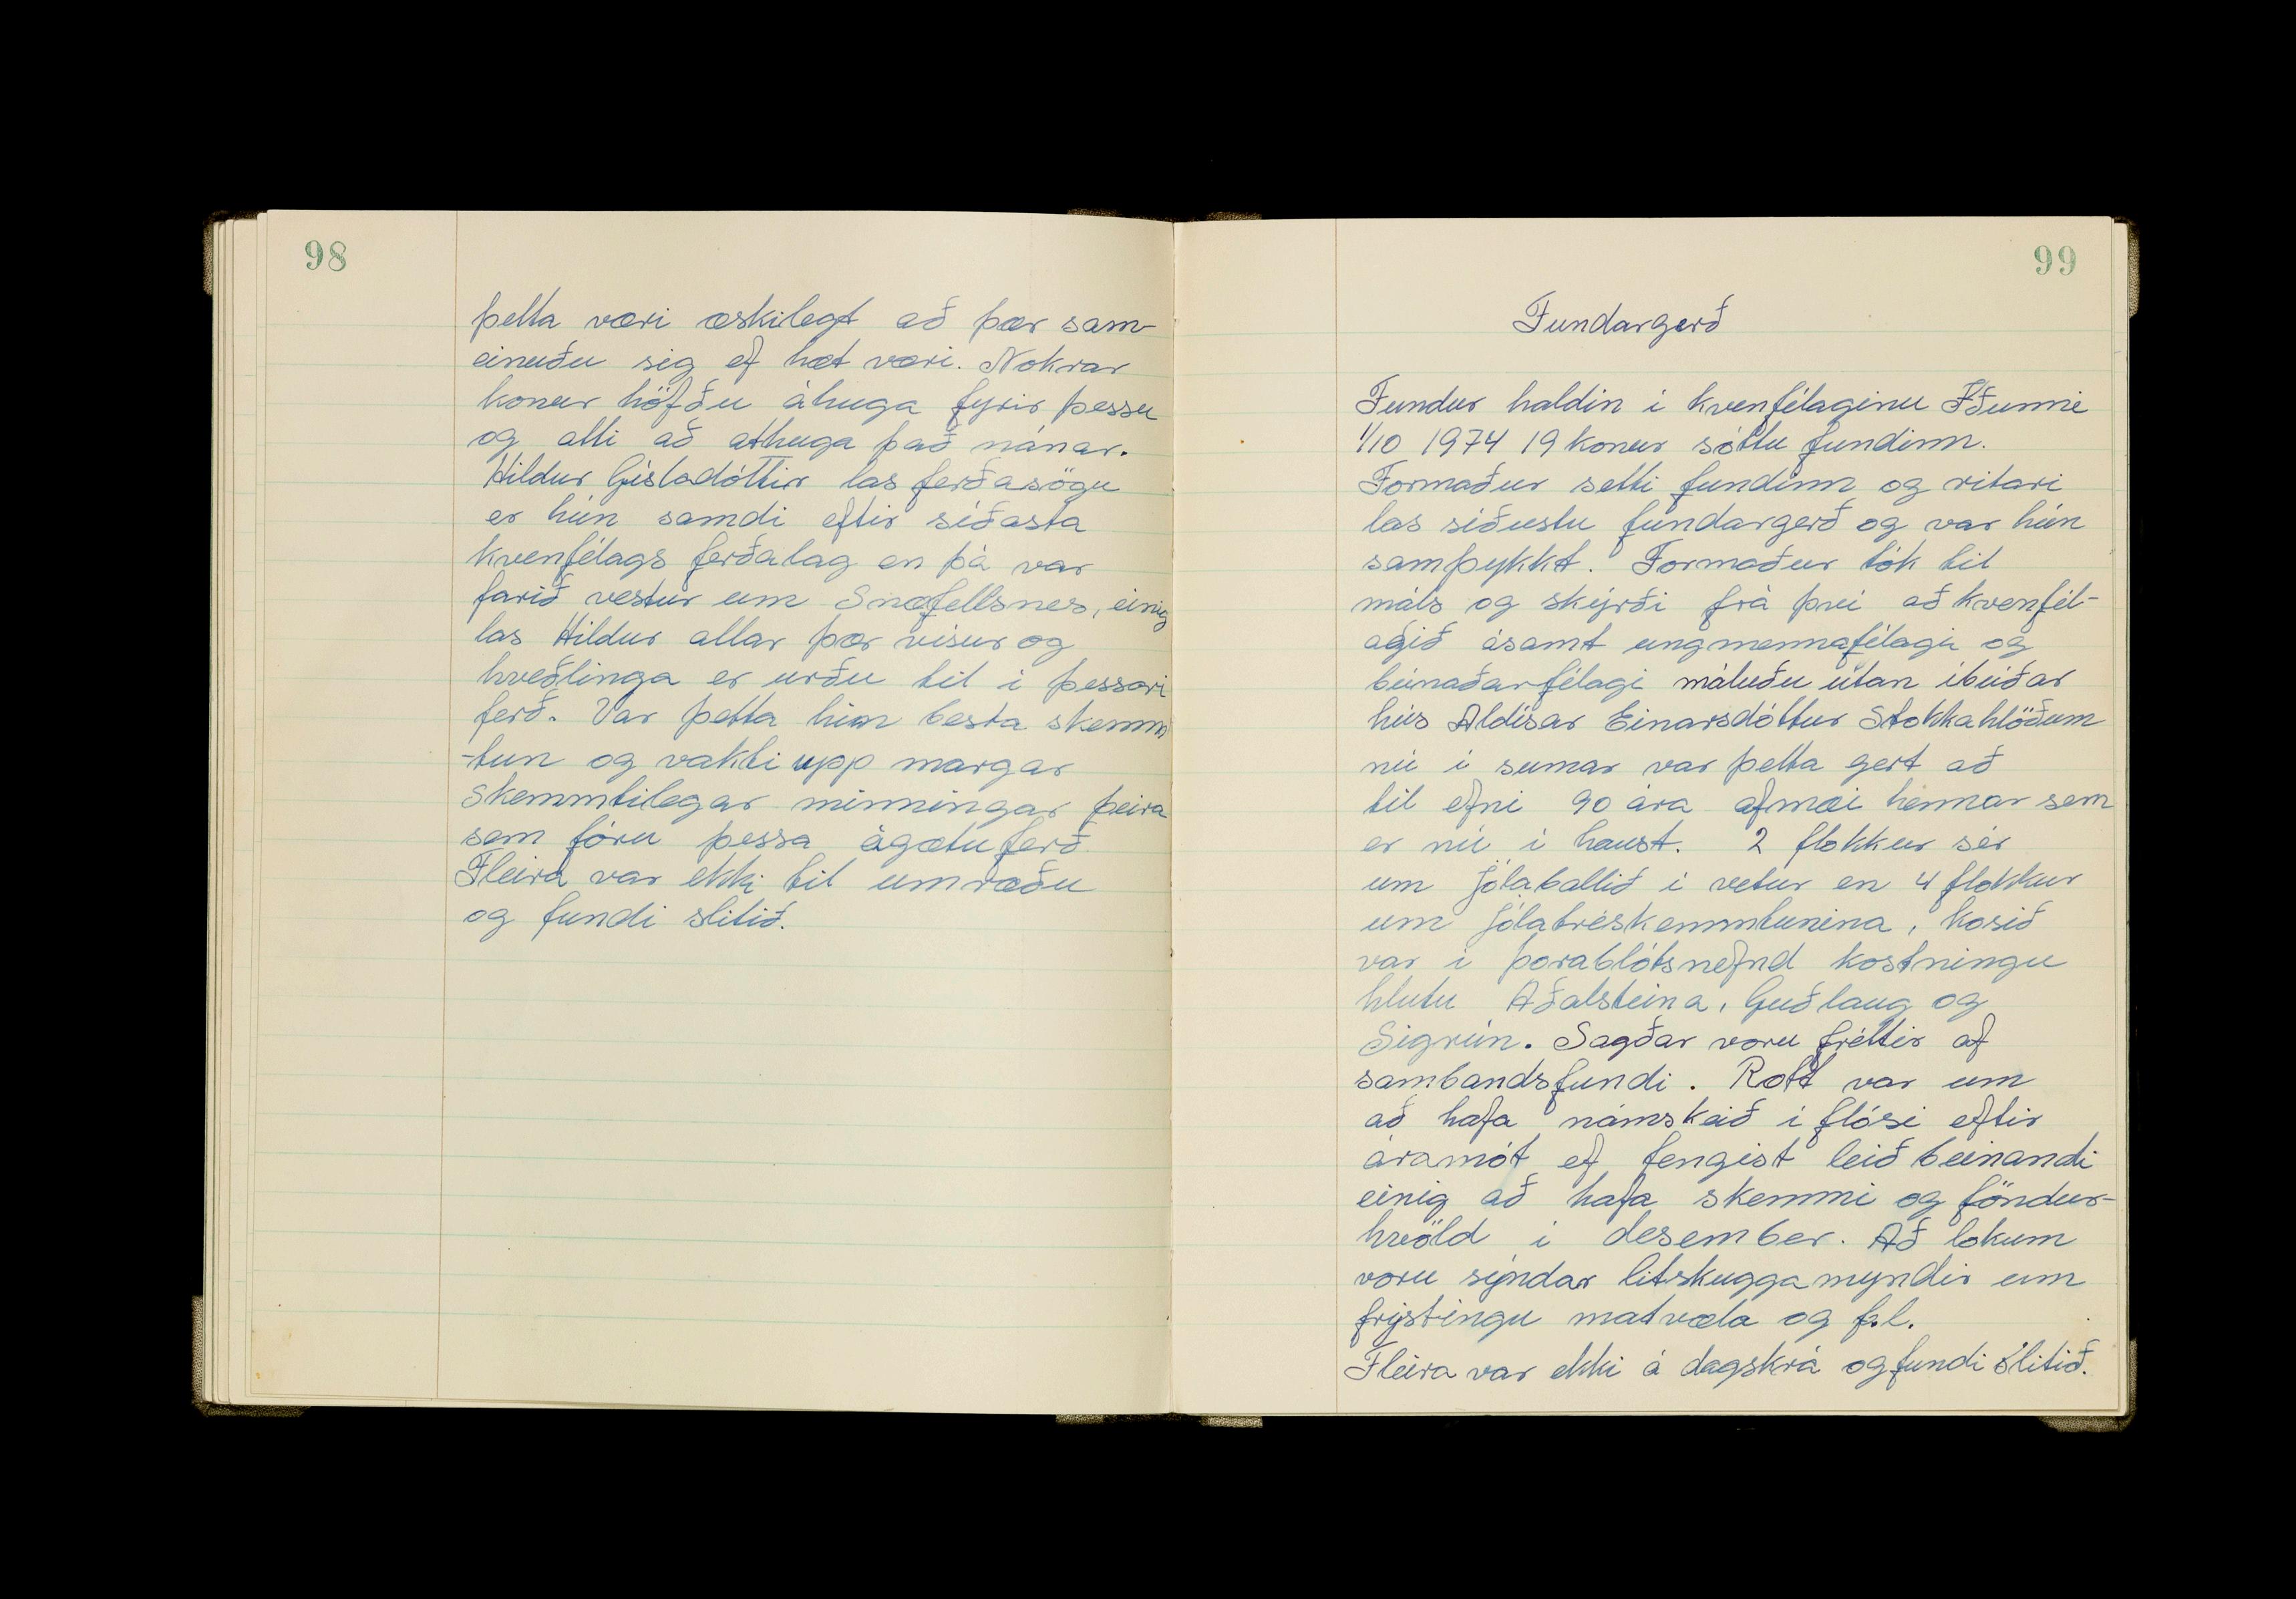 98
þetta væri æskilegt að þær sam-
einuðu sig ef hæt væri. Nokrar
konur höfðu áhuga fyrir þessu
og átti að athuga það nánar.
Hildur Gísladóttir las ferðasögu
er hún samdi eftir síðasta
kvenfélags ferðalag en þá var
farið vestur um Snæfellsnes, einig
las Hildur allar þær vísur og
kveðlinga er urðu til í þessari
ferð. Var þetta hin besta skemm
-tun og vakti upp margar
skemmtilegar minningar þeira
sem fóru þessa ágætu ferð
Fleira var ekki til umræðu
og fundi slitið.
99
Fundargerð
Fundur haldin í kvenfélaginu Iðunni
1/10 1974 19 konur sóttu fundinn.
Formaður setti fundinn og ritari
las síðustu fundargerð og var hún
samþykkt. Formaður tók til
máls og skýrði frá því að kvenfél-
agið ásamt ungmennafélagi og
búnaðarfélagi máluðu útan íbúðar
hús Aldísar Einarsdóttur Stokkahlöðum
nú í sumar var þetta gert að
til efni 90 ára afmæi hennar sem
er nú í haust. 2 flokkur sér
um jólaballið í vetur en 4 flokkur
um jólatréskemmtunina, kosið
var í þorablótsnefnd kostningu
hlutu Aðalsteina, Guðlaug og
Sigrún. Sagðar voru fréttir af
sambandsfundi. Rætt var um
að hafa námskeið í flósi eftir
áramót ef fengist leiðbeinandi
einig að hafa skemmi og föndur-
kvöld í desember. Að lokum
voru sýndar litskuggamyndir um
frystingu matvæla og f.l.
Fleira var ekki á dagskrá og fundi slitið.